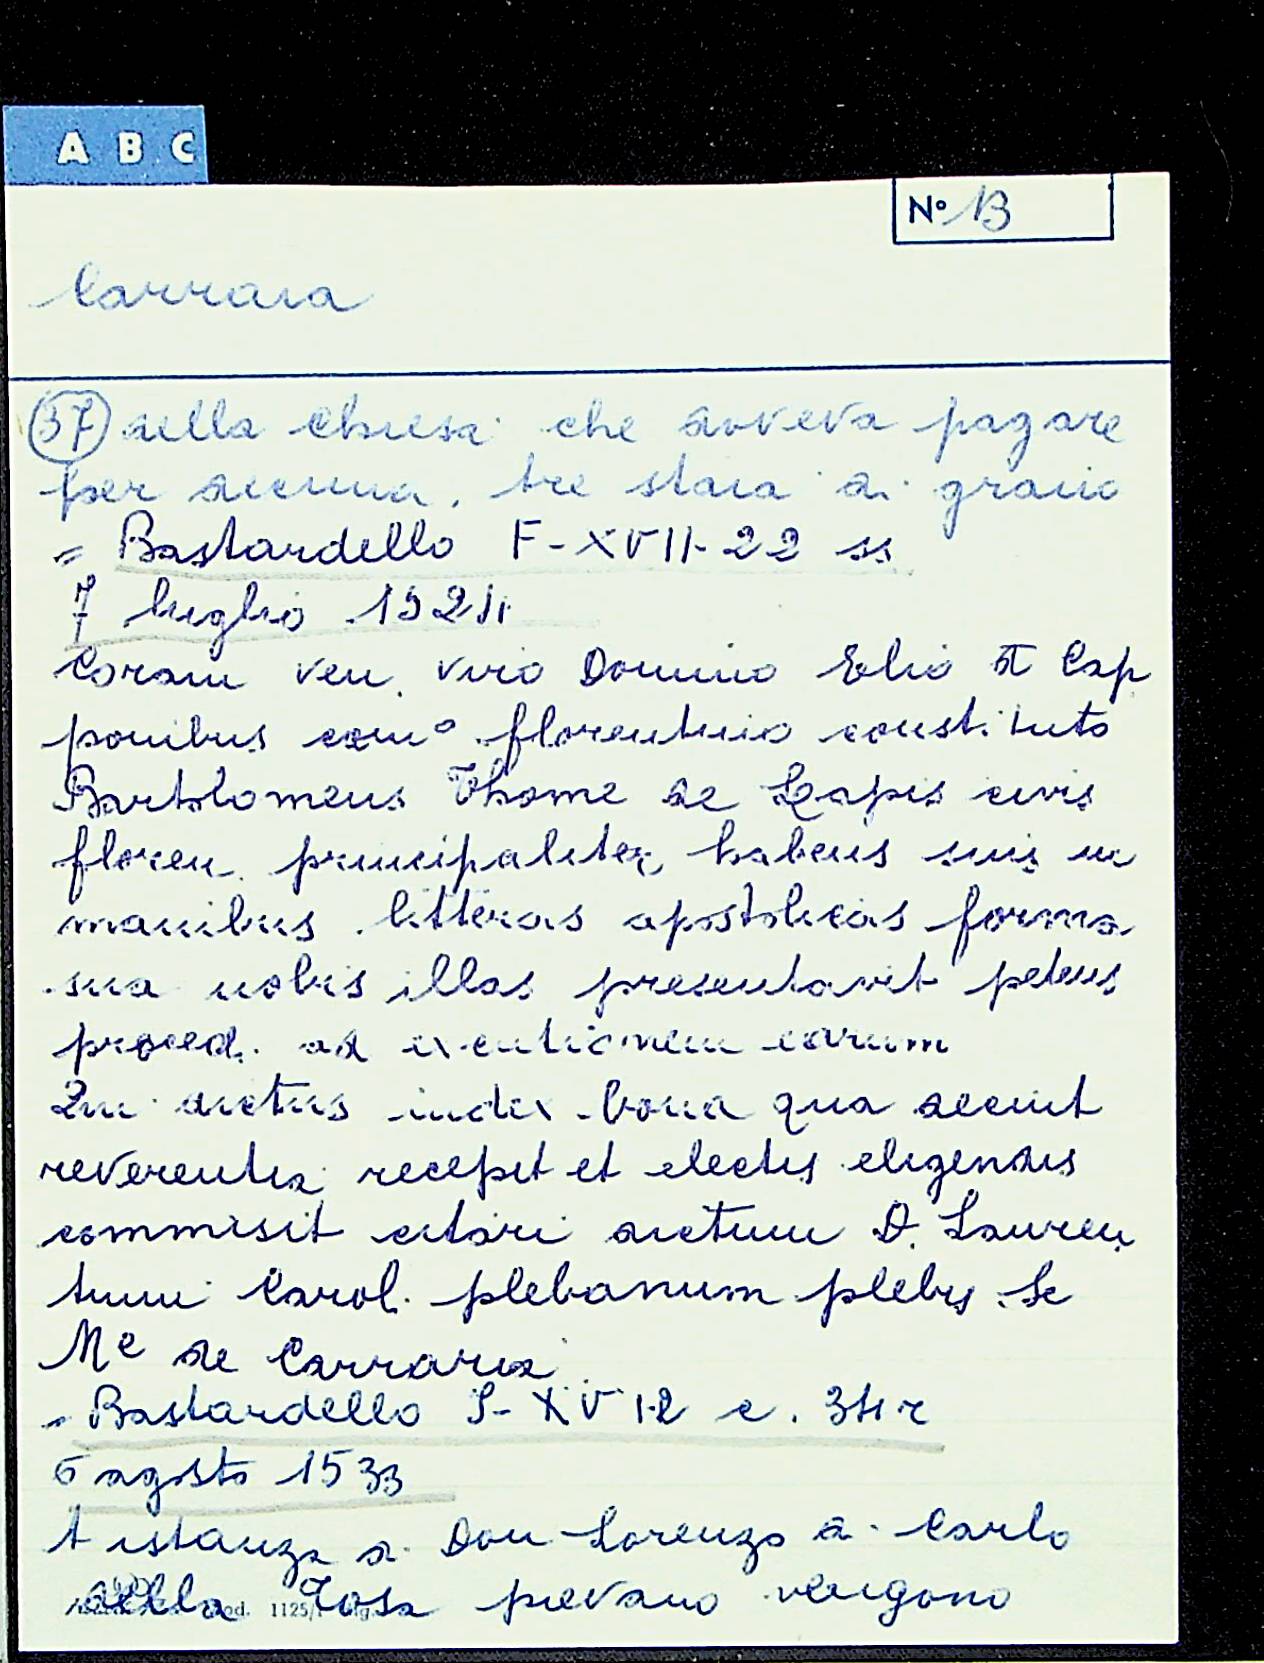 A B C
N° 13
Carraia
37 della chiesa che doveva pagare
per decima, tre staia di grano
= Bastardello F-XVII-22 ss
7 luglio 1524
Coram ven. viro Domino Elio de Cap
ponibus cano florentino constituto
Bartolomeus Thome de Lapis civis
floren. principaliter, habens suis in
manibus litteras apostolicas forma
sua nobis illas presentavit petens
proced. ad executionem earum
Qui dictus iudex bona qua decuit
reverentia recepit et electis eligendis
commisit citari dictum D. Lauren
tium Carol. plebanum plebis Se
Me de Carraria
= Bastardello S-XVI-2 c. 34r
6 agosto 1533
A istanza di Don Lorenzo di Carlo
della Tosa pievano vengono
od. 1125/